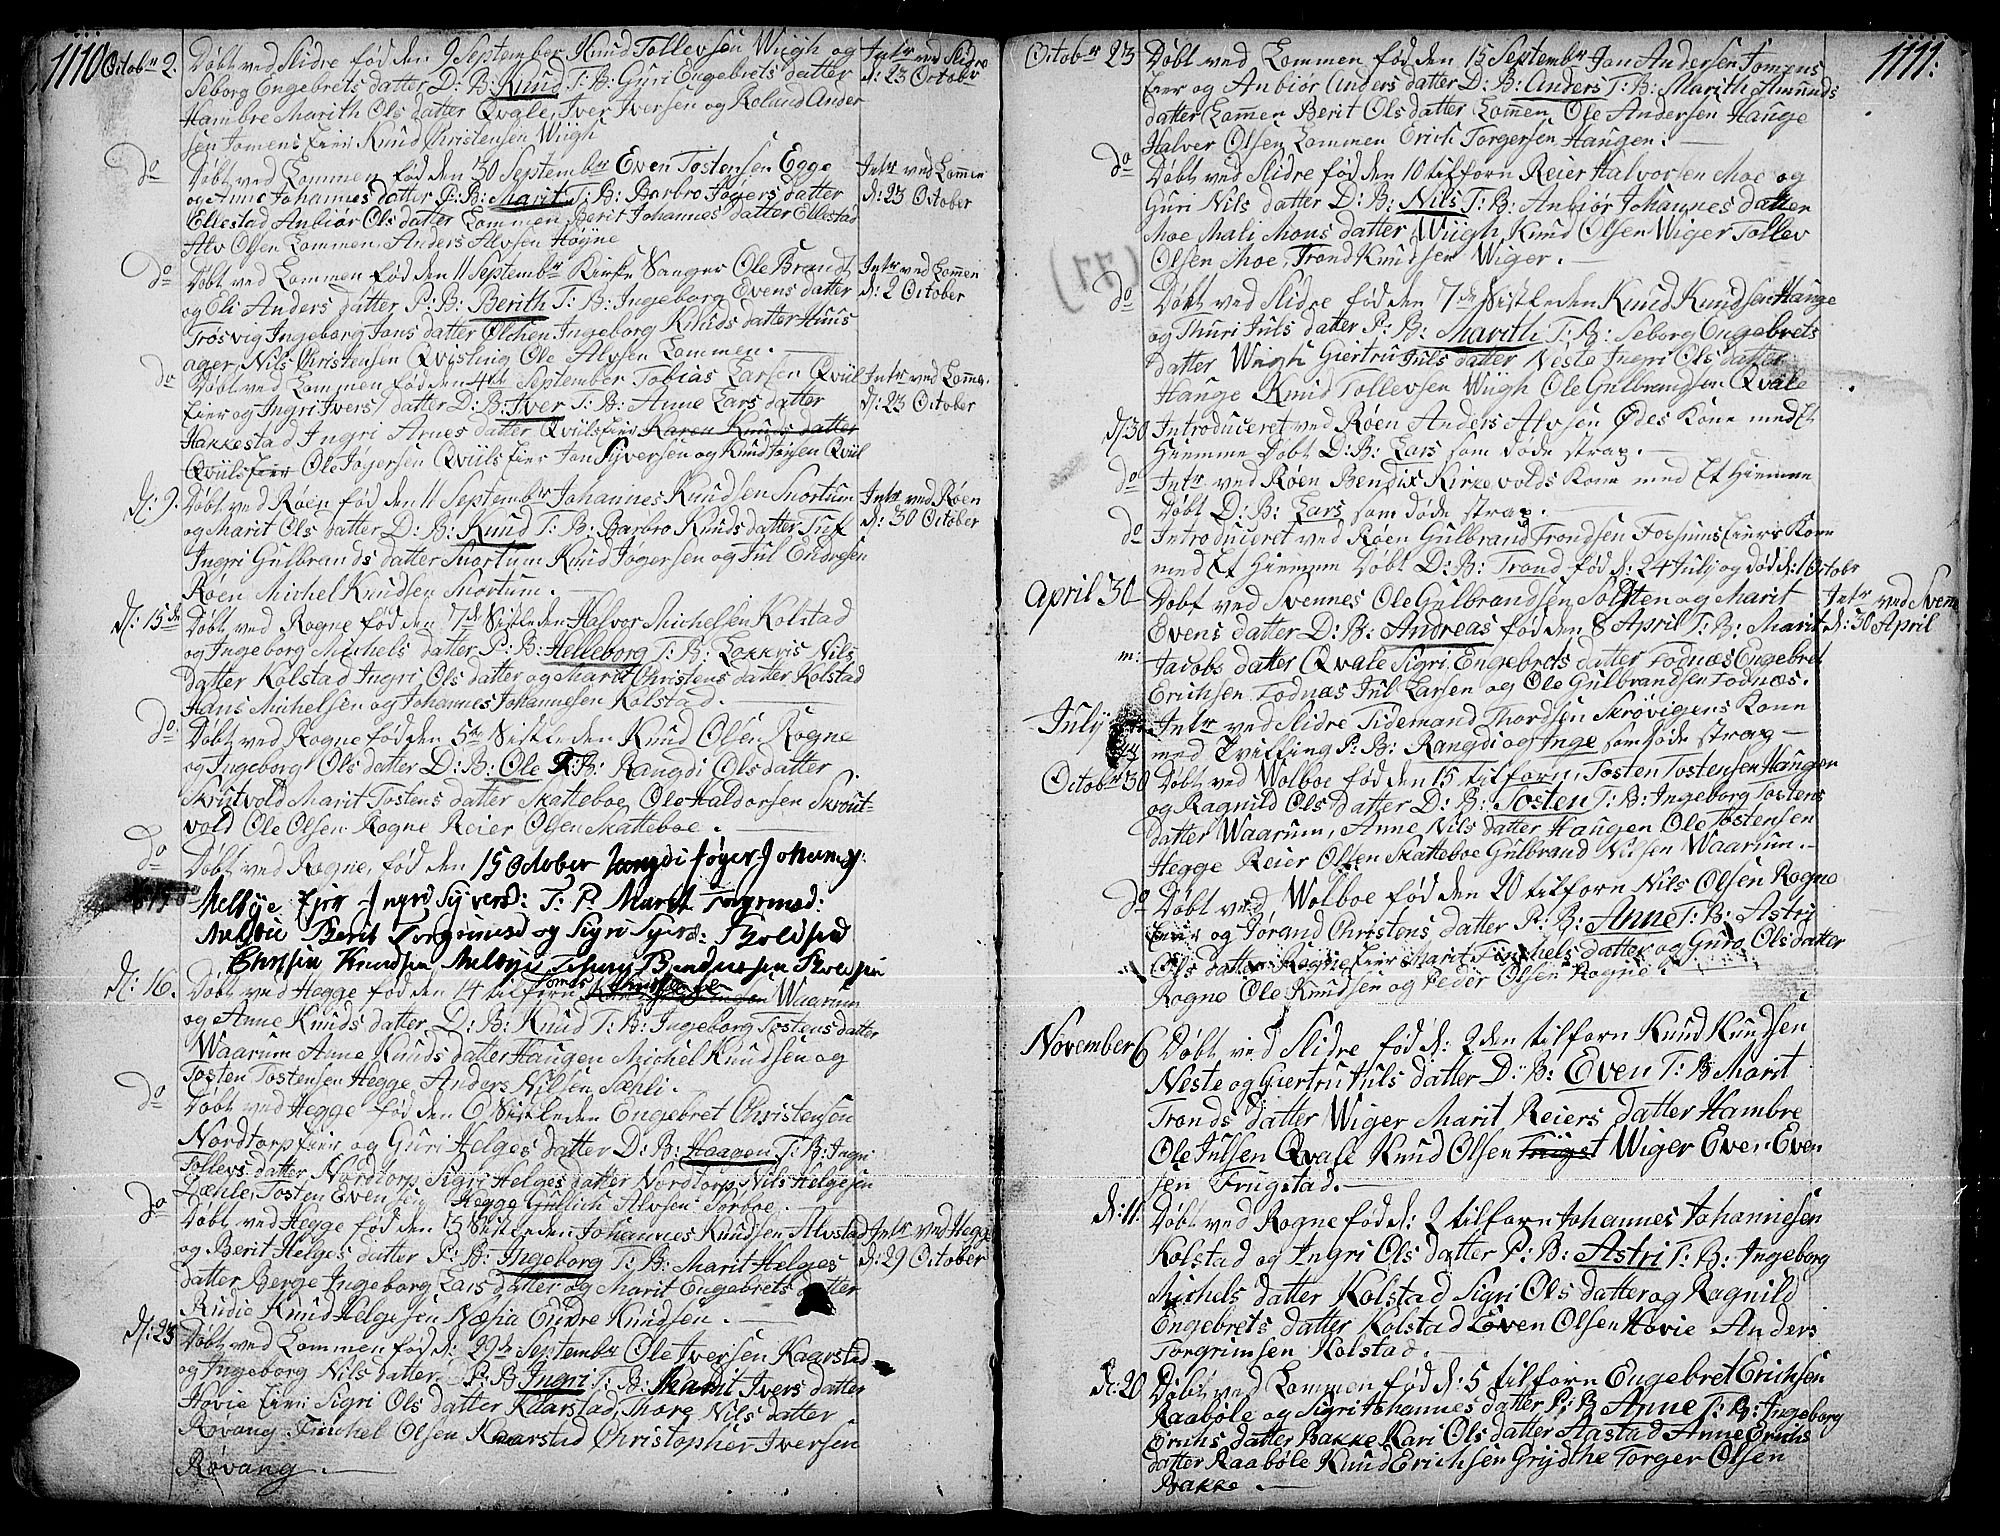 1110
Octobr 2. Døbt ved Slidre fød den 9 September Knud Tollevsen Wiigh og
Seborg Engebrets datter D: B: Knud T: B: Guri Engebrets datter
Hambre Marith Ols datter Qvale, Iver Iversen og Roland Ander
sen Tomens Eier Knud Christensen Wiigh
Intr ved Slidre
d: 23 Octobr
do Døbt ved Lommen fød den 30 Septembr Even Tostensen Egge
og Anne Johannes datter P: B: Marit T: B: Barbro Jøgers datter
Ellestad Anbiør Ols datter Lommen Berit Johannes datter Ellestad
Alv Olsen Lommen, Anders Alvsen Høyne
Intr ved Lommen
d: 23 October
do Døbt ved Lommen fød den 11 Septembr Kirke Sanger Ole Brandt
og Eli Anders datter P: B: Berith T: B: Ingeborg Evens datter
Trøsvig Ingeborg Jons datter Ølchen Ingeborg Knuds datter Huus
ager, Nils Christensen Qvisting Ole Alvsen Lommen.
Intr ved Lomen
d: 2 October
do Døbt ved Lommen fød den 4de September Tobias Larsen Qviil
Eier og Ingri Ivers datter D: B: Iver T: B: Anne Lars datter
Hakkestad Ingri Arnes datter Qviilseier Karen Knuds datter
Qviilseier Ole Jøgersen Qviils Eier Jon Syversen og Knud Jonsen Qviil
Intr ved Lomme.
d: 23 October
d: 9. Døbt ved Røen fød den 11 Septembr Johannes Knudsen Snortum
og Marit Ols datter D: B: Knud T: B: Barbro Knuds datter Tuf
Ingri Gulbrands datter Snortum Knud Jøgersen og Jul Endresen
Røen Michel Knudsen Snortum.
Intr ved Røen
d: 30 October
d: 15de Døbt ved Rogne fød den 7de Sistleden Halvor Michelsen Kolstad
og Ingeborg Michels datter P: B: Helleborg T: B: Lokkris Nils
datter Kolstad Ingri Ols datter og Marit Christens datter Kolstad
Hans Michelsen og Johannes Johannesen Kolstad.
do Døbt ved Rogne fød den 5te Sistleden Knud Olsen Rogne
og Ingeborg Ols datter D: B: Ole T: B: Rangdi Ols datter
Skritvold Marit Tostens datter Skatteboe Ole Haldorsen Skrout-
vold Ole Olsen Rogne Reier Olsen Skatteboe.
do Døbt ved Rogne, fød den 15 October Rangdi Jøger Johannes:
Melbye Eier Ingrd Syversd: T. P. Maret Torgrimsd:
Melbye Berit Torgrimsd og Sigri Syversd:
Knudsen Melbye
d: 16. Døbt ved Hegge fød den 14 tilforn Waarum
og Anne Knuds datter D: B: Knud T: B: Ingeborg Tostens datter
Waarum Anne Knuds datter Haugen Michel Knudsen og
Tosten Tostensen Hegge Anders Nilsen Sæhli.
do Døbt ved Hegge fød den 6 Sistleden Engebret Christensen
Nordtorpeier og Guri Helges datter D: B: Haagen T: B: Ingri
Tollevs datter Nordtorp Sigri Helges datter Nordtorp Nils Helgesen
Sæhle, Tosten Evensen Hegge Gullich Alvsen Torboe.
do Døbt ved Hegge fød den 15 Sistleden Johannes Knudsen Alvstad
og Berit Helges datter P: B: Ingeborg T: B: Marit Helges
datter Berge Ingeborg Lars datter og Marit Engebrets datter
Rudie Knud Helgesen Næsia Endre Knudsen.
Intr ved Hegge
d: 29 October
d: 23 Døbt ved Lommen fød d: 29de Septembr Ole Iversen Kaarstad
og Ingeborg Nils datter P: B: Ingri T: B: Marit Ivers datter
Hovie Eier Sigri Ols datter Kaarstad, Thore Nils datter
Røvang Tinchel Olsen Kaarstad Christopher Iversen
Røvang.
1111:
Octobr 23 Døbt ved Lommen fød den 15 Septembr Jon Andersen Tomens
Eier og Anbiør Anders datter D: B: Anders T: B: Marith Amunds
datter Lommen Berit Ols datter Lommen, Ole Andersen Hauge
Halvor Olsen Lommen Erich Torgersen Haugen.
do Døbt ved Slidre fød den 10 tilforn Reier Halvorsen Moe og
Guri Nils datter D: B: Nils T: B: Anbiør Johannes datter
Moe Mali Mons datter Wiigh Knud Olsen Wiger Tollev
Olsen Moe, Trond Knudsen Wiger.
(77)
do Døbt ved Slidre fød den 7de Sistleden Knud Knudsen Hauge
og Thuri Juls datter P: B: Marith T: B: Seborg Engebrets
datter Wiigh Giertru Juls datter Neste Ingri Ols datter
Hauge Knud Tollevsen Wiigh Ole Gulbrandsen Qvale
d: 30 Introduceret ved Røen Anders Alvsen Ødes Kone med Et
Hiemme Døbt D: B: Lars som døde strax.
do Intr ved Røen Bendix Kirkevolds Kone med Et Hiemme
Døbt D: B: Lars som døde strax.
do Introduceret ved Røen Gulbrand Trondsen Fossums Eiers Kone
med Et Hiemme Døbt D: B: Trond fød d: 24 July og død d: 1 Octobr
April 30 Døbt ved Svennes Ole Gulbrandsen Solsten og Marit
Evens datter D: B: Andreas fød den 8 April T: B: Marit
m: Jacobs datter Qvale Sigri Engebrets datter Fodnæs Engebret
Erichsen Fodnæs Jul Larsen og Ole Gulbrandsen Fodnæs.
Intr ved Svenne
d: 30 April
July Intr ved Slidre Tidemand Thordsen Skrøvigens Kone
med Tvilling P: B: Rangdi og Inge som døde strax
Octobr 30 Døbt ved Wolboe fød den 15 tilforn, Tosten Tostensen Haugen
og Ragnild Ols datter D: B: Tosten T: B: Ingeborg Tostens
datter Waarum, Anne Nils datter Haugen Ole Tostensen
Hegge Reier Olsen Skatteboe Gulbrand Nilsen Waarum.
do Døbt ved Wolboe fød den 20 tilforn Nils Olsen Rogne
Eier og Jørand Christens datter P: B: Anne T: B: Astri
Ols datter Rogne Eier Marit Tinchels datter og Guro Ols datter
Rogne Ole Knudsen og Peder Olsen Rogne.
November 6 Døbt ved Slidre fød d: 2den tilforn Knud Knudsen
Neste og Giertru Juls datter D: B: Even T: B: Marit
Tronds datter Wiger Marit Reiers datter Hambre
Ole Julsen Qvale Knud Olsen Frugst Wiger Even Even
sen Frugstad.
d: 11. Døbt ved Rogne fød d: 2 tilforn Johannes Johannesen
Kolstad og Ingri Ols datter P: B: Astri T: B: Ingeborg
Michels datter Kolstad Sigri Ols datter og Ragnild
Engebrets datter Kolstad Even Olsen Hovie Anders
Torgrimsen Kolstad.
d: 20 Døbt ved Lommen fød d: 5 tilforn Engebret Erichsen
Raabøle og Sigri Johannes datter P: B: Anne T: B: Ingeborg
Erichs datter Bakke Kari Ols datter Aastad Anne Erichs
datter Raabøle Knud Erichsen Grydthe Torger Olsen
Bakke.